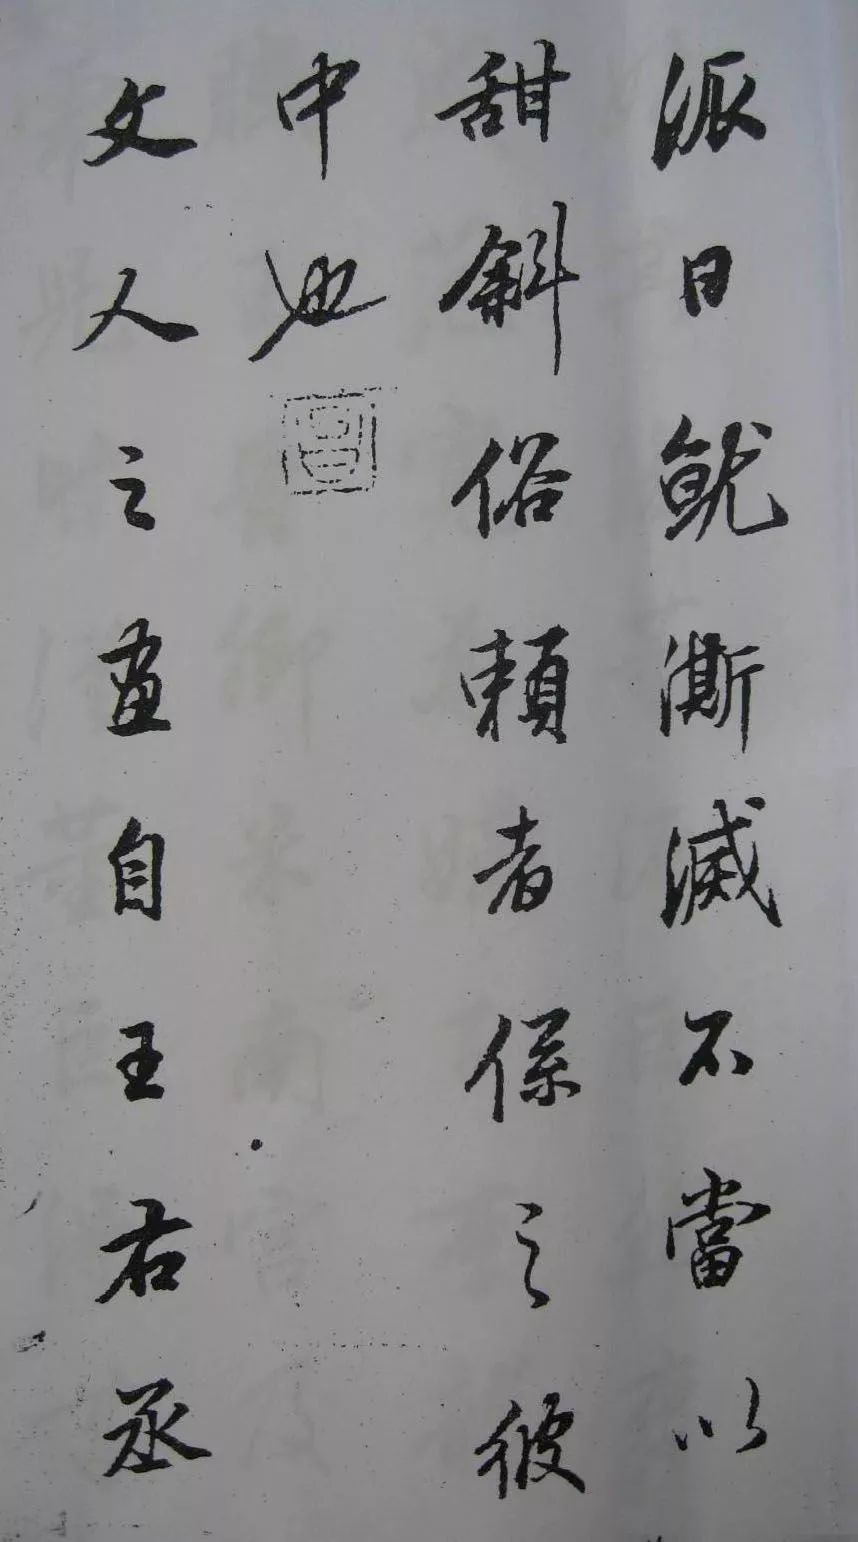 派日就澌滅不當以
甜斜俗頼者係之彼
中也
文人之畫自王右丞